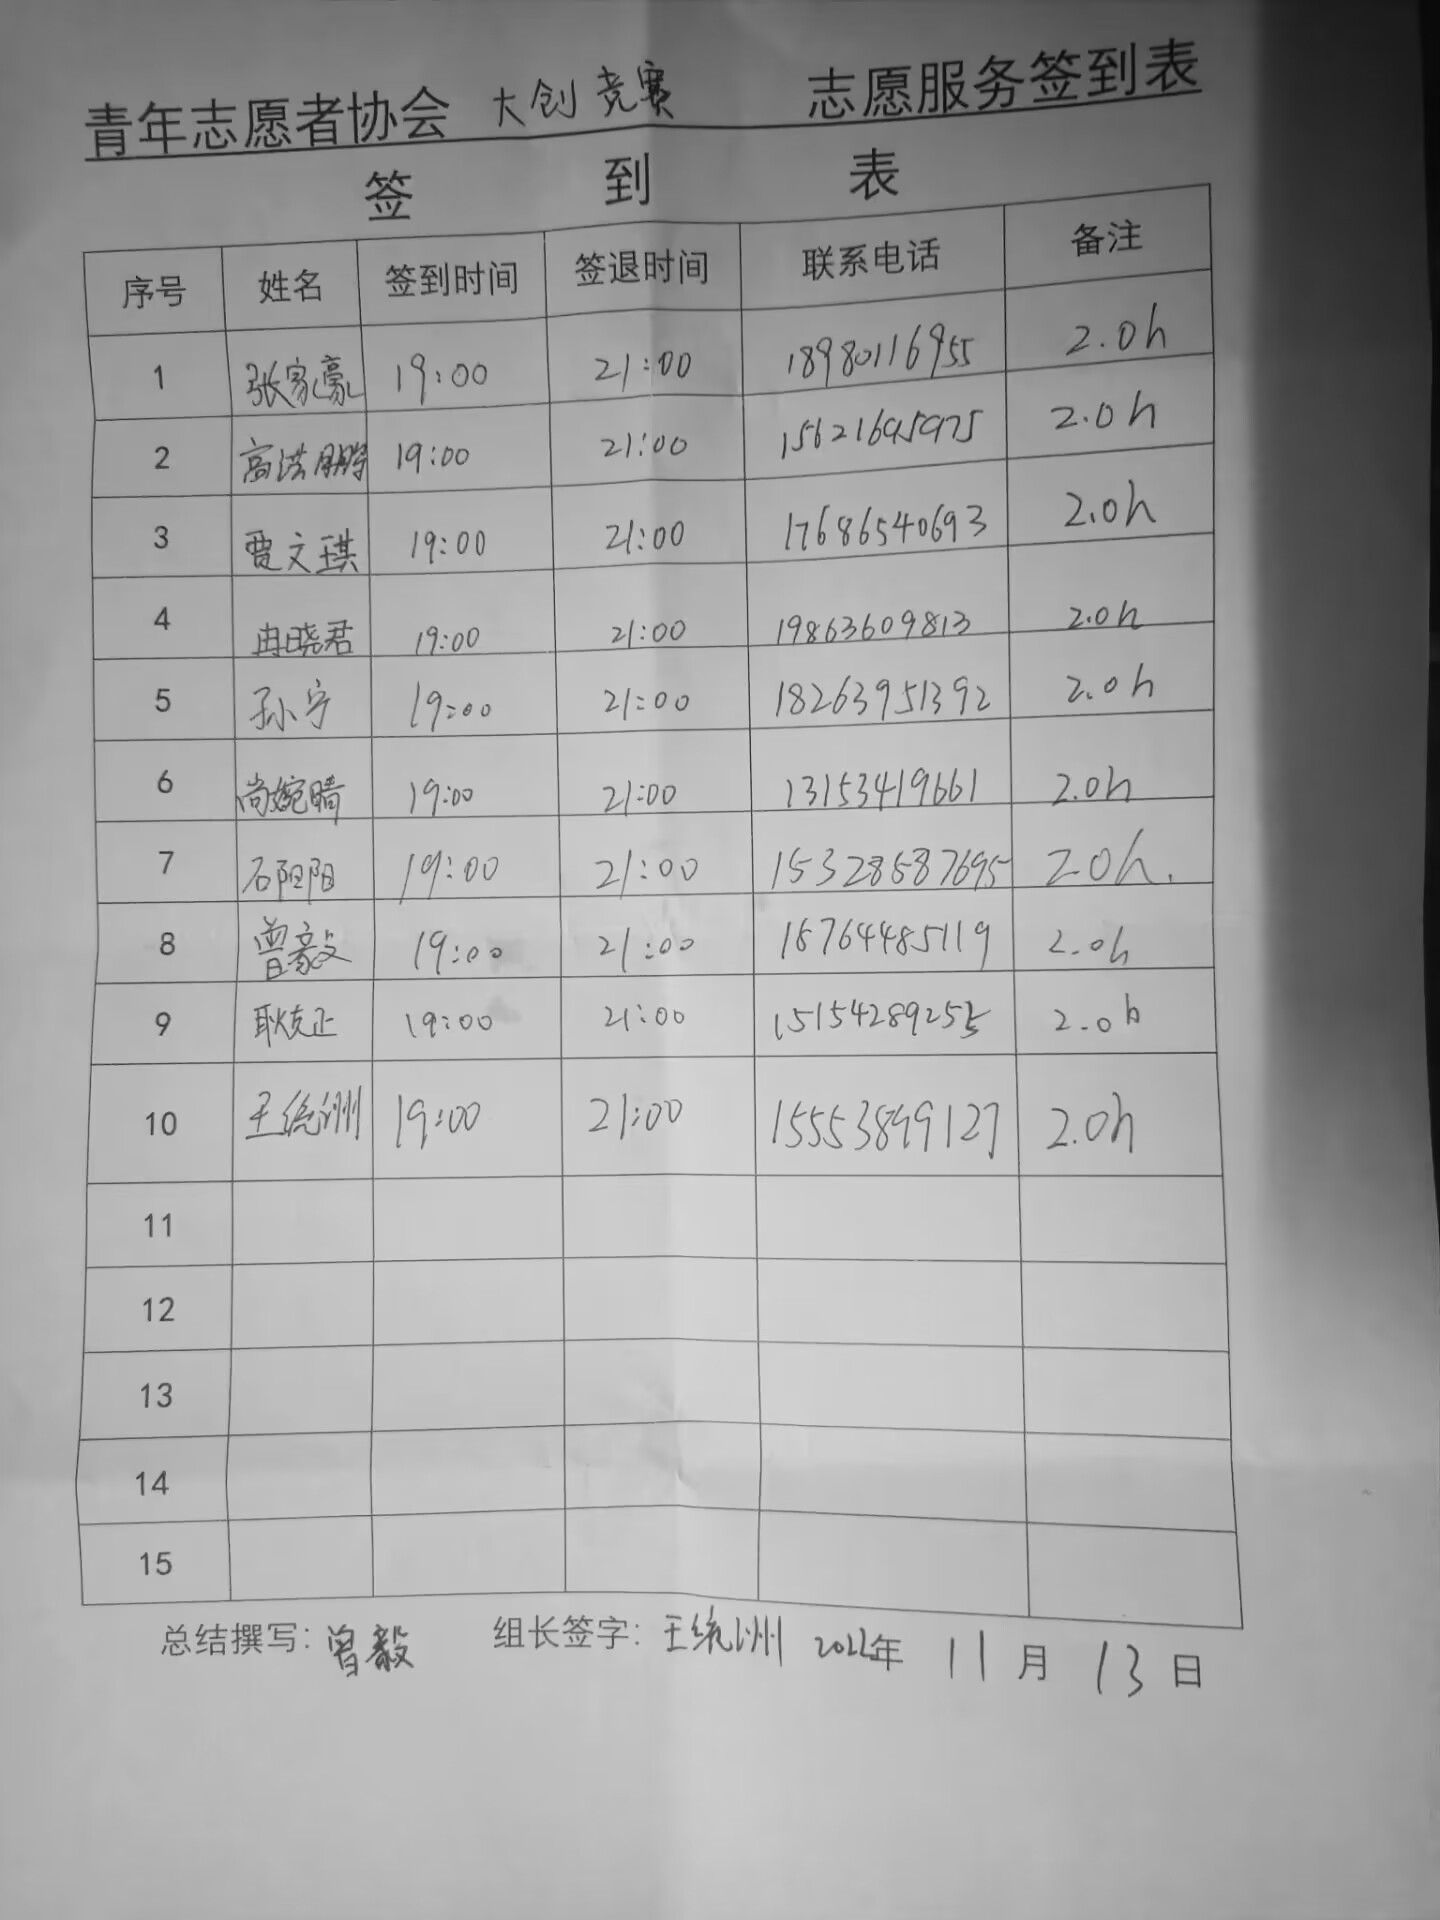 青年志愿者协会 大创竞赛 志愿服务签到表
签 到 表
序号 姓名 签到时间 签退时间 联系电话 备注
1 张家豪 19:00 21:00 18980116955 2.0h
2 高洪鹏 19:00 21:00 15621695975 2.0h
3 贾文琪 19:00 21:00 17686540693 2.0h
4 冉晓君 19:00 21:00 19863609813 2.0h
5 孙宁 19:00 21:00 18263951392 2.0h
6 尚婉晴 19:00 21:00 13153419661 2.0h
7 石阳阳 19:00 21:00 15328587695 2.0h.
8 曾毅 19:00 21:00 18764485119 2.0h
9 耿友正 19:00 21:00 15154289255 2.0h
10 王统洲 19:00 21:00 15553899127 2.0h
11
12
13
14
15
总结撰写：曾毅 组长签字：王统洲 2022年 11 月 13 日